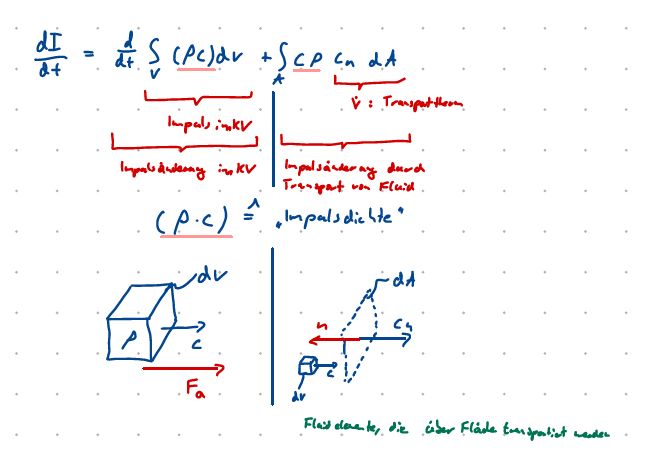 dI/dt = d/dt ∫_V (ρc)dV + ∫_A cρ c_n dA
V̇ : Transportterm
Impuls im KV
Impulsänderung im KV
Impulsänderung durch
Transport von Fluid
(ρ·c) ≙ „Impulsdichte"
dV
dA
ρ
c
n
c_n
c
F_a
dV
Fluidelemente, die über Fläche transportiert werden